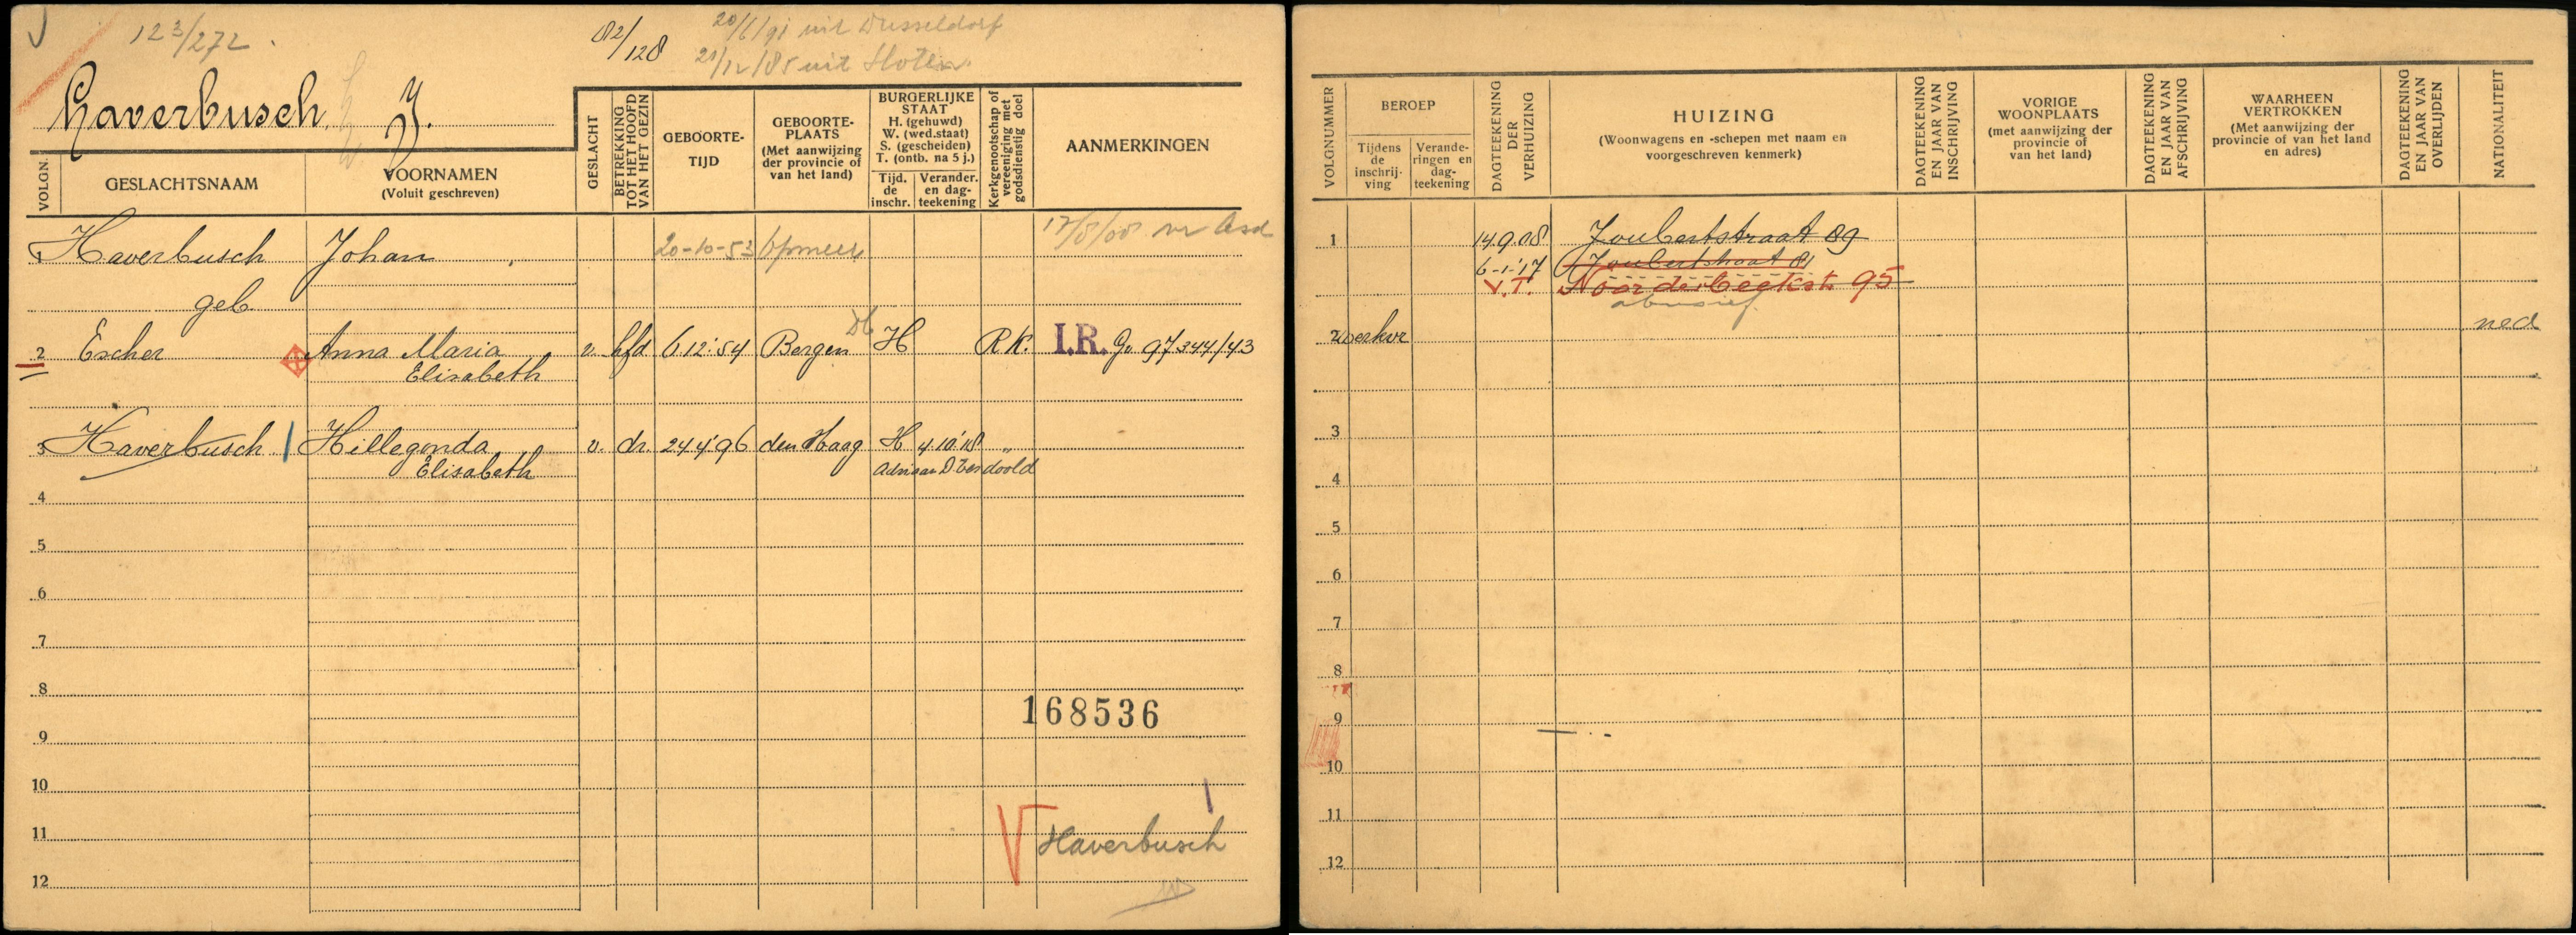 12 3/272.
82/128
20/6/91 uit Dusseldorf
21/12/85 uit Sloten.
Haverbusch, J.
VOLGN.
GESLACHTSNAAM
VOORNAMEN
(Voluit geschreven)
GESLACHT
BETREKKING
TOT HET HOOFD
VAN HET GEZIN
GEBOORTE-
TIJD
GEBOORTE-
PLAATS
(Met aanwijzing
der provincie of
van het land)
BURGERLIJKE
STAAT
H. (gehuwd)
W. (wed.staat)
S. (gescheiden)
T. (ontb. na 5 j.)
Tijd.
de
inschr.
Verander.
en dag-
teekening
Kerkgenootschap of
vereeniging met
godsdienstig doel
AANMERKINGEN
Haverbusch Johan 20-10-53 Opmeer 17/8/08 nr Asd
geb
2 Escher Anna Maria v. hfd 6 12 '54 Bergen H R K. I.R. 97344/43
Elisabeth
3 Haverbusch Hillegonda v. dr. 24 4 '96 den Haag H 4.10.'18 "
Elisabeth Adriaan D
4
5
6
7
8
168536
9
10
11
Haverbusch
12
VOLGNUMMER
BEROEP
Tijdens
de
inschrij-
ving
Verande-
ringen en
dag-
teekening
DAGTEEKENING
DER
VERHUIZING
HUIZING
(Woonwagens en -schepen met naam en
voorgeschreven kenmerk)
DAGTEEKENING
EN JAAR VAN
INSCHRIJVING
VORIGE
WOONPLAATS
(met aanwijzing der
provincie of
van het land)
DAGTEEKENING
EN JAAR VAN
AFSCHRIJVING
WAARHEEN
VERTROKKEN
(Met aanwijzing der
provincie of van het land
en adres)
DAGTEEKENING
EN JAAR VAN
OVERLIJDEN
NATIONALITEIT
1 14 9 08 Joubertstraat 89
6-1-'17 Joubertstraat 81
V.T. Noorderbeekstr 95
abusief.
2 werkvr ned
3
4
5
6
7
8
9
10
11
12